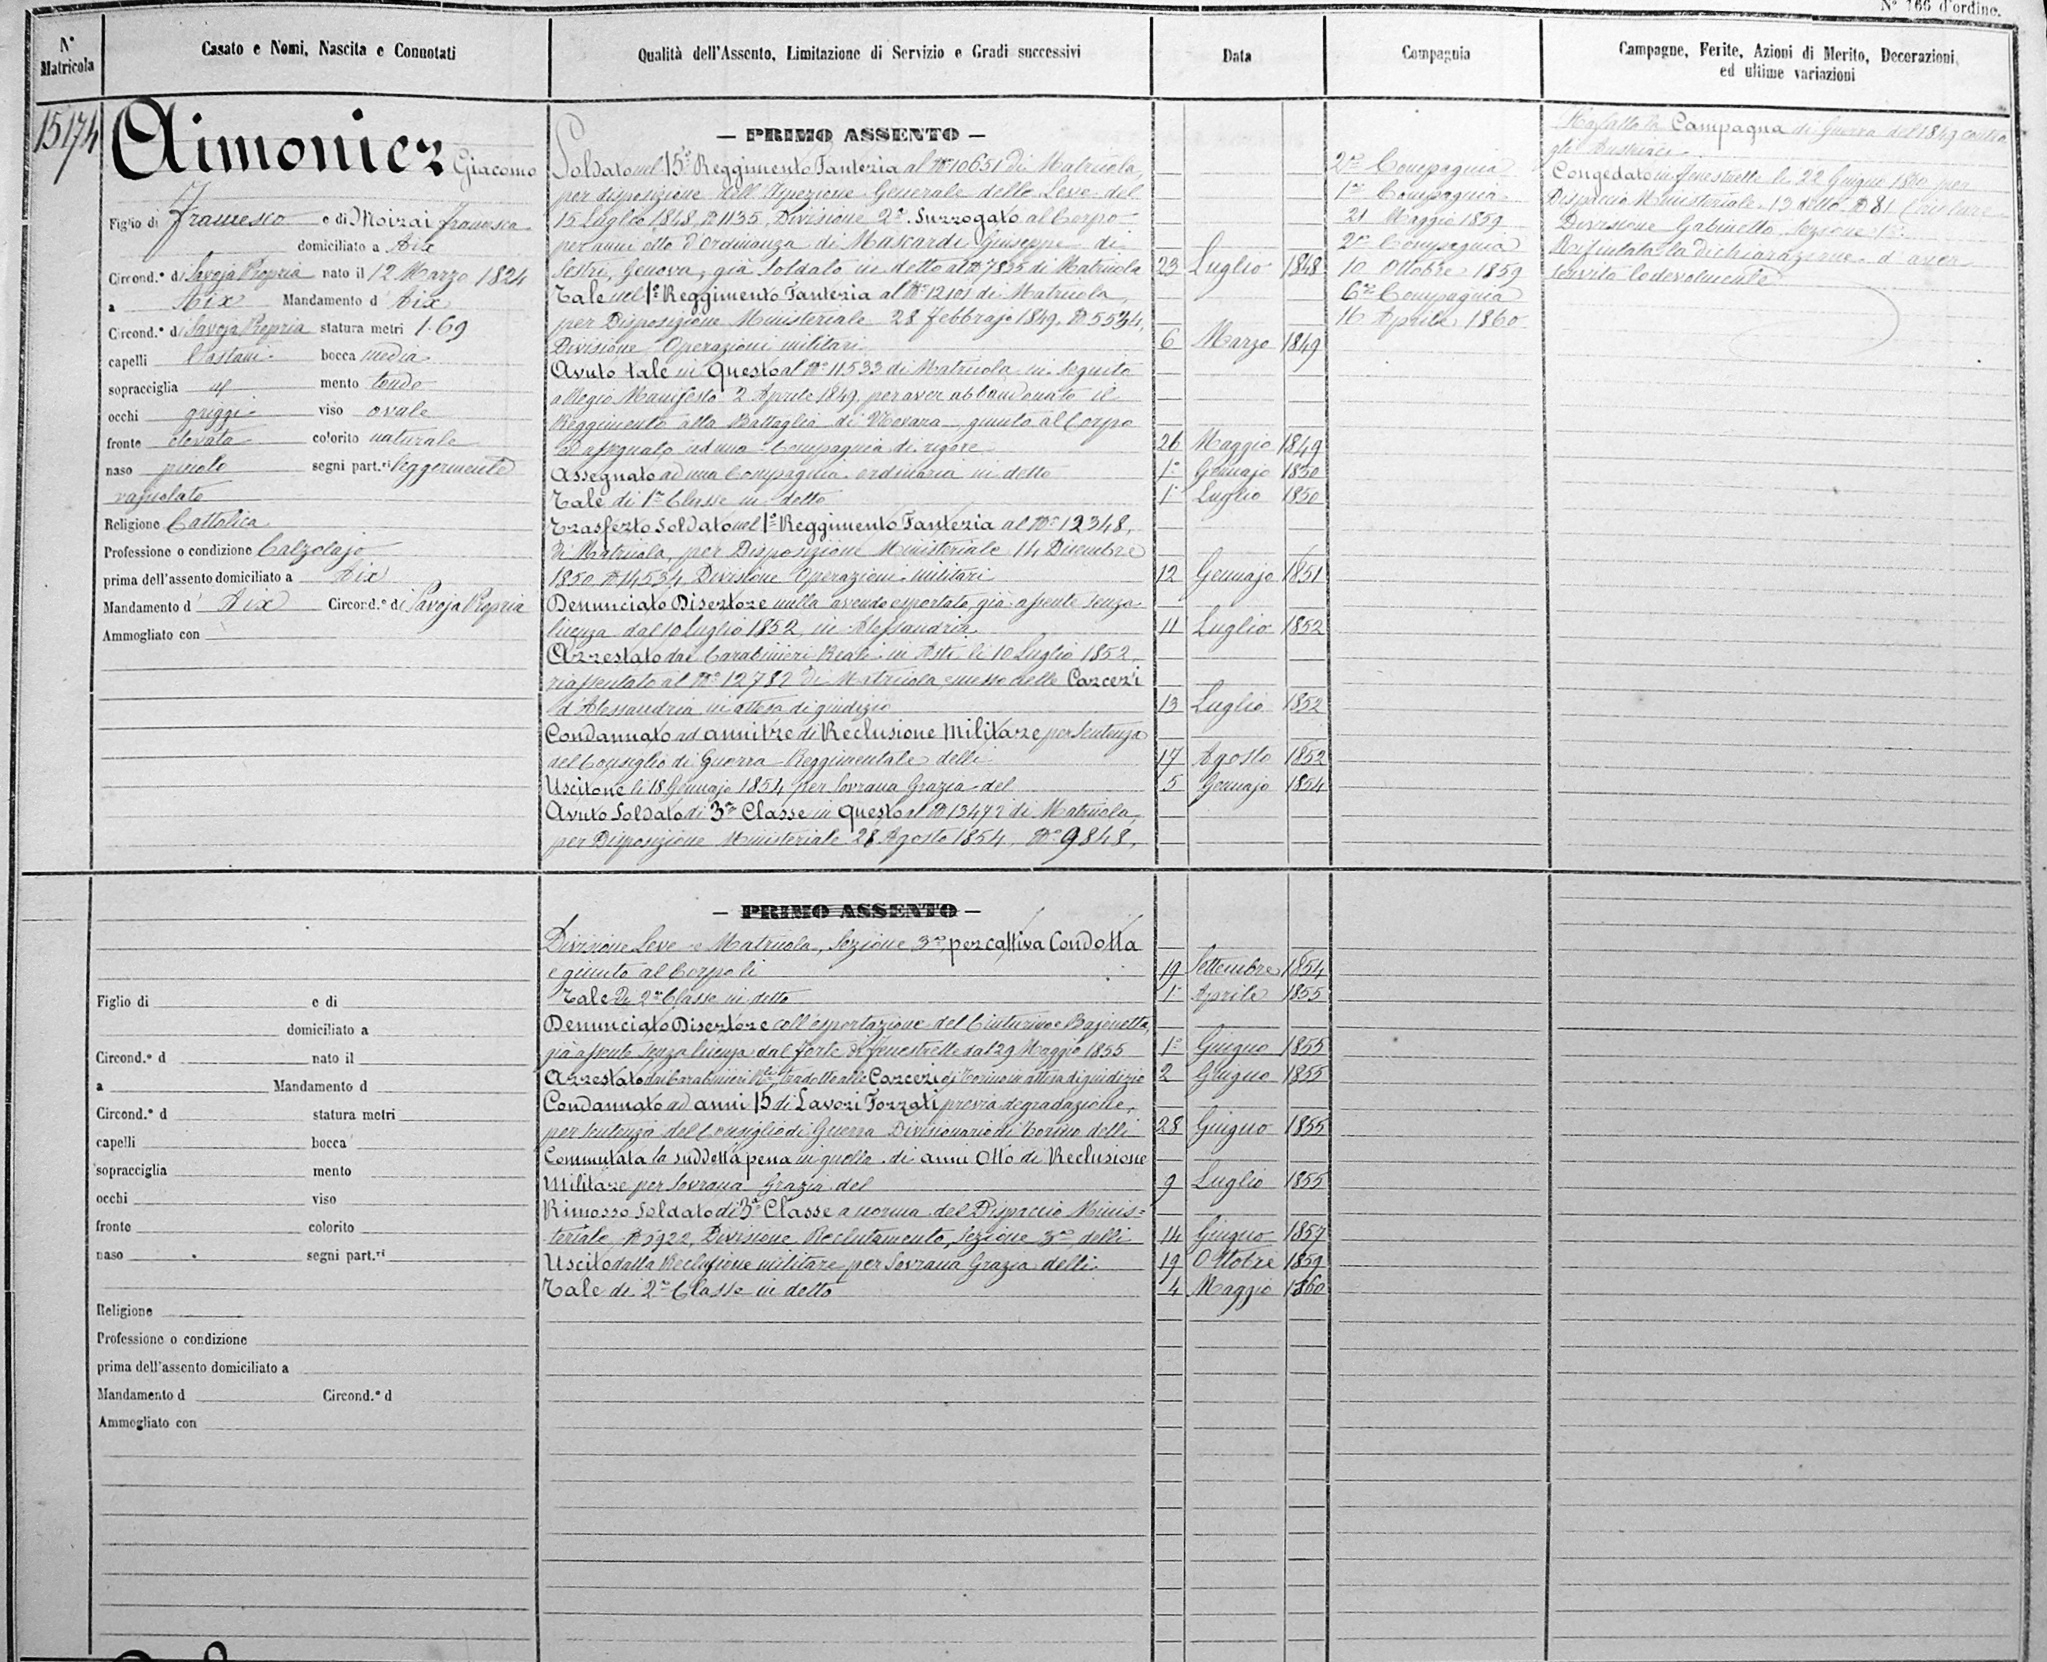 N° 166 d'ordine.
N° Matricola
Casato e Nomi, Nascita e Connotati
Qualità dell'Assento, Limitazione di Servizio e Gradi successivi
Data
Compagnia
Campagne, Ferite, Azioni di Merito, Decorazioni,
ed ultime variazioni
15174
Aimonier Giacomo
Figlio di Francesco e di Moirai Francesca
domiciliato a Aix
Circond.° di Savoja Propria nato il 12 Marzo 1824
a Aix Mandamento d' Aix
Circond.° di Savoja Propria statura metri 1.69
capelli Castani bocca media
sopracciglia id mento tondo
occhi griggi viso ovale
fronte elevata colorito naturale
naso piccolo segni part.ri leggermente
vajuolato
Religione Cattolica
Professione o condizione Calzolajo
prima dell'assento domiciliato a Aix
Mandamento d' Aix Circond.° di Savoja Propria
Ammogliato con
— PRIMO ASSENTO —
Soldato nel 15° Reggimento Fanteria al N° 10651 di Matricola,
per disposizione dell'Ispezione Generale delle Leve del
15 Luglio 1848, N 1135, Divisione 2a. Surrogato al Corpo
per anni otto d'Ordinanza di Mascardi Giuseppe di
Sestri, Genova, già Soldato in detto al N° 7835 di Matricola 23 Luglio 1848
Tale nel 1° Reggimento Fanteria al N° 12101 di Matricola,
per Disposizione Ministeriale 28 Febbrajo 1849, N 5534,
Divisione Operazioni militari 6 Marzo 1849
Avuto tale in questo al N° 11533 di Matricola in seguito
al Regio Manifesto 2 Aprile 1849, per aver abbandonato il
Reggimento alla Battaglia di Novara, giunto al Corpo
ed assegnato ad una Compagnia di rigore 26 Maggio 1849
Assegnato ad una Compagnia ordinaria in detto 1° Gennajo 1850
Tale di 1a Classe in detto 1° Luglio 1850
Trasferto Soldato nel 1° Reggimento Fanteria al N° 12348,
di Matricola, per Disposizione Ministeriale 14 Dicembre
1850 N 14534, Divisione Operazioni militari 12 Gennajo 1851
Denunciato Disertore nulla avendo esportato, già assente senza
licenza dal 10 Luglio 1852, in Alessandria 11 Luglio 1852
Arrestato dai Carabinieri Reali in Asti li 10 Luglio 1852,
riassentato al N° 12782 di Matricola, messo nelle Carceri
d'Alessandria in attesa di giudizio 13 Luglio 1852
Condannato ad anni tre di Reclusione Militare per Sentenza
del Consiglio di Guerra Reggimentale delli 17 Agosto 1852
Uscitone li 18 Gennajo 1854 per Sovrana Grazia del 5 Gennajo 1854
Avuto Soldato di 3a Classe in questo al N 13472 di Matricola,
per Disposizione Ministeriale 28 Agosto 1854, N° 9848,
2a Compagnia
1a Compagnia
21 Maggio 1859
2a Compagnia
10 Ottobre 1859
6a Compagnia
16 Aprile 1860
Ha fatto la Campagna di Guerra del 1849 contro
gli Austriaci.
Congedato in Fenestrelle li 22 Giugno 1860 per
Dispaccio Ministeriale 13 detto N 81
Divisione Gabinetto Sezione 1a
Rifiutata la dichiarazione d'aver
servito lodevolmente
— PRIMO ASSENTO —
Divisione Leve e Matricola, Sezione 3a, per cattiva Condotta
e giunto al Corpo li 19 Settembre 1854
Tale di 2a Classe in detto 1° Aprile 1855
Denunciato Disertore coll'esportazione del Cinturino e Bajonetta,
già assente senza licenza dal Forte di Fenestrelle dal 29 Maggio 1855 1° Giugno 1855
Arrestato dai Carabinieri Rli, tradotto alle Carceri di Torino in attesa di giudizio 2 Giugno 1855
Condannato ad anni 15 di Lavori Forzati previa degradazione,
per Sentenza del Consiglio di Guerra Divisionario di Torino delli 28 Giugno 1855
Commutata la suddetta pena in quella di anni Otto di Reclusione
Militare per Sovrana Grazia del 9 Luglio 1855
Rimosso Soldato di 3a Classe a norma del Dispaccio Minis=
teriale N 3922, Divisione Reclutamento, Sezione 3a, delli 14 Giugno 1857
Uscito dalla Reclusione militare per Sovrana Grazia delli 19 Ottobre 1859
Tale di 2a Classe in detto 4 Maggio 1860
Figlio di e di
domiciliato a
Circond.° d nato il
a Mandamento d
Circond.° d statura metri
capelli bocca
sopracciglia mento
occhi viso
fronte colorito
naso segni part.ri
Religione
Professione o condizione
prima dell'assento domiciliato a
Mandamento d Circond.° d
Ammogliato con